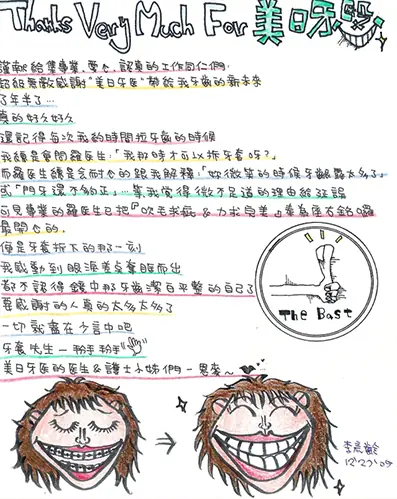 Thanks Very Much For 美日牙醫
謹獻給集專業、愛心、認真的工作同仁們:
超級無敵感謝"美日牙醫"帶給我牙齒的新未來
了年半了…
真的好久好久
還記得每次我約時間拉牙齒的時候
我總是會問羅醫生:「我那時才可以拆牙套呀?」
而羅醫生總是會耐心的跟我解釋:「妳微笑的時候牙齦露太多了」
或「門牙還不夠正」…等我覺得微不足道的理由給延誤
可見專業的羅醫生已把『吹毛求疵 & 力求完美』奉為座右銘囉
最開心的,
便是牙套拆下的那一刻
我感動到眼淚差點奪眶而出
都不認得鏡中那牙齒潔白平整的自己了
要感謝的人真的太多太多了
一切就盡在不言中吧
牙套先生—掰掰掰
美日牙医的医生&護士小姊們一鞠來~
The Best
李晨齡
12/27/'09